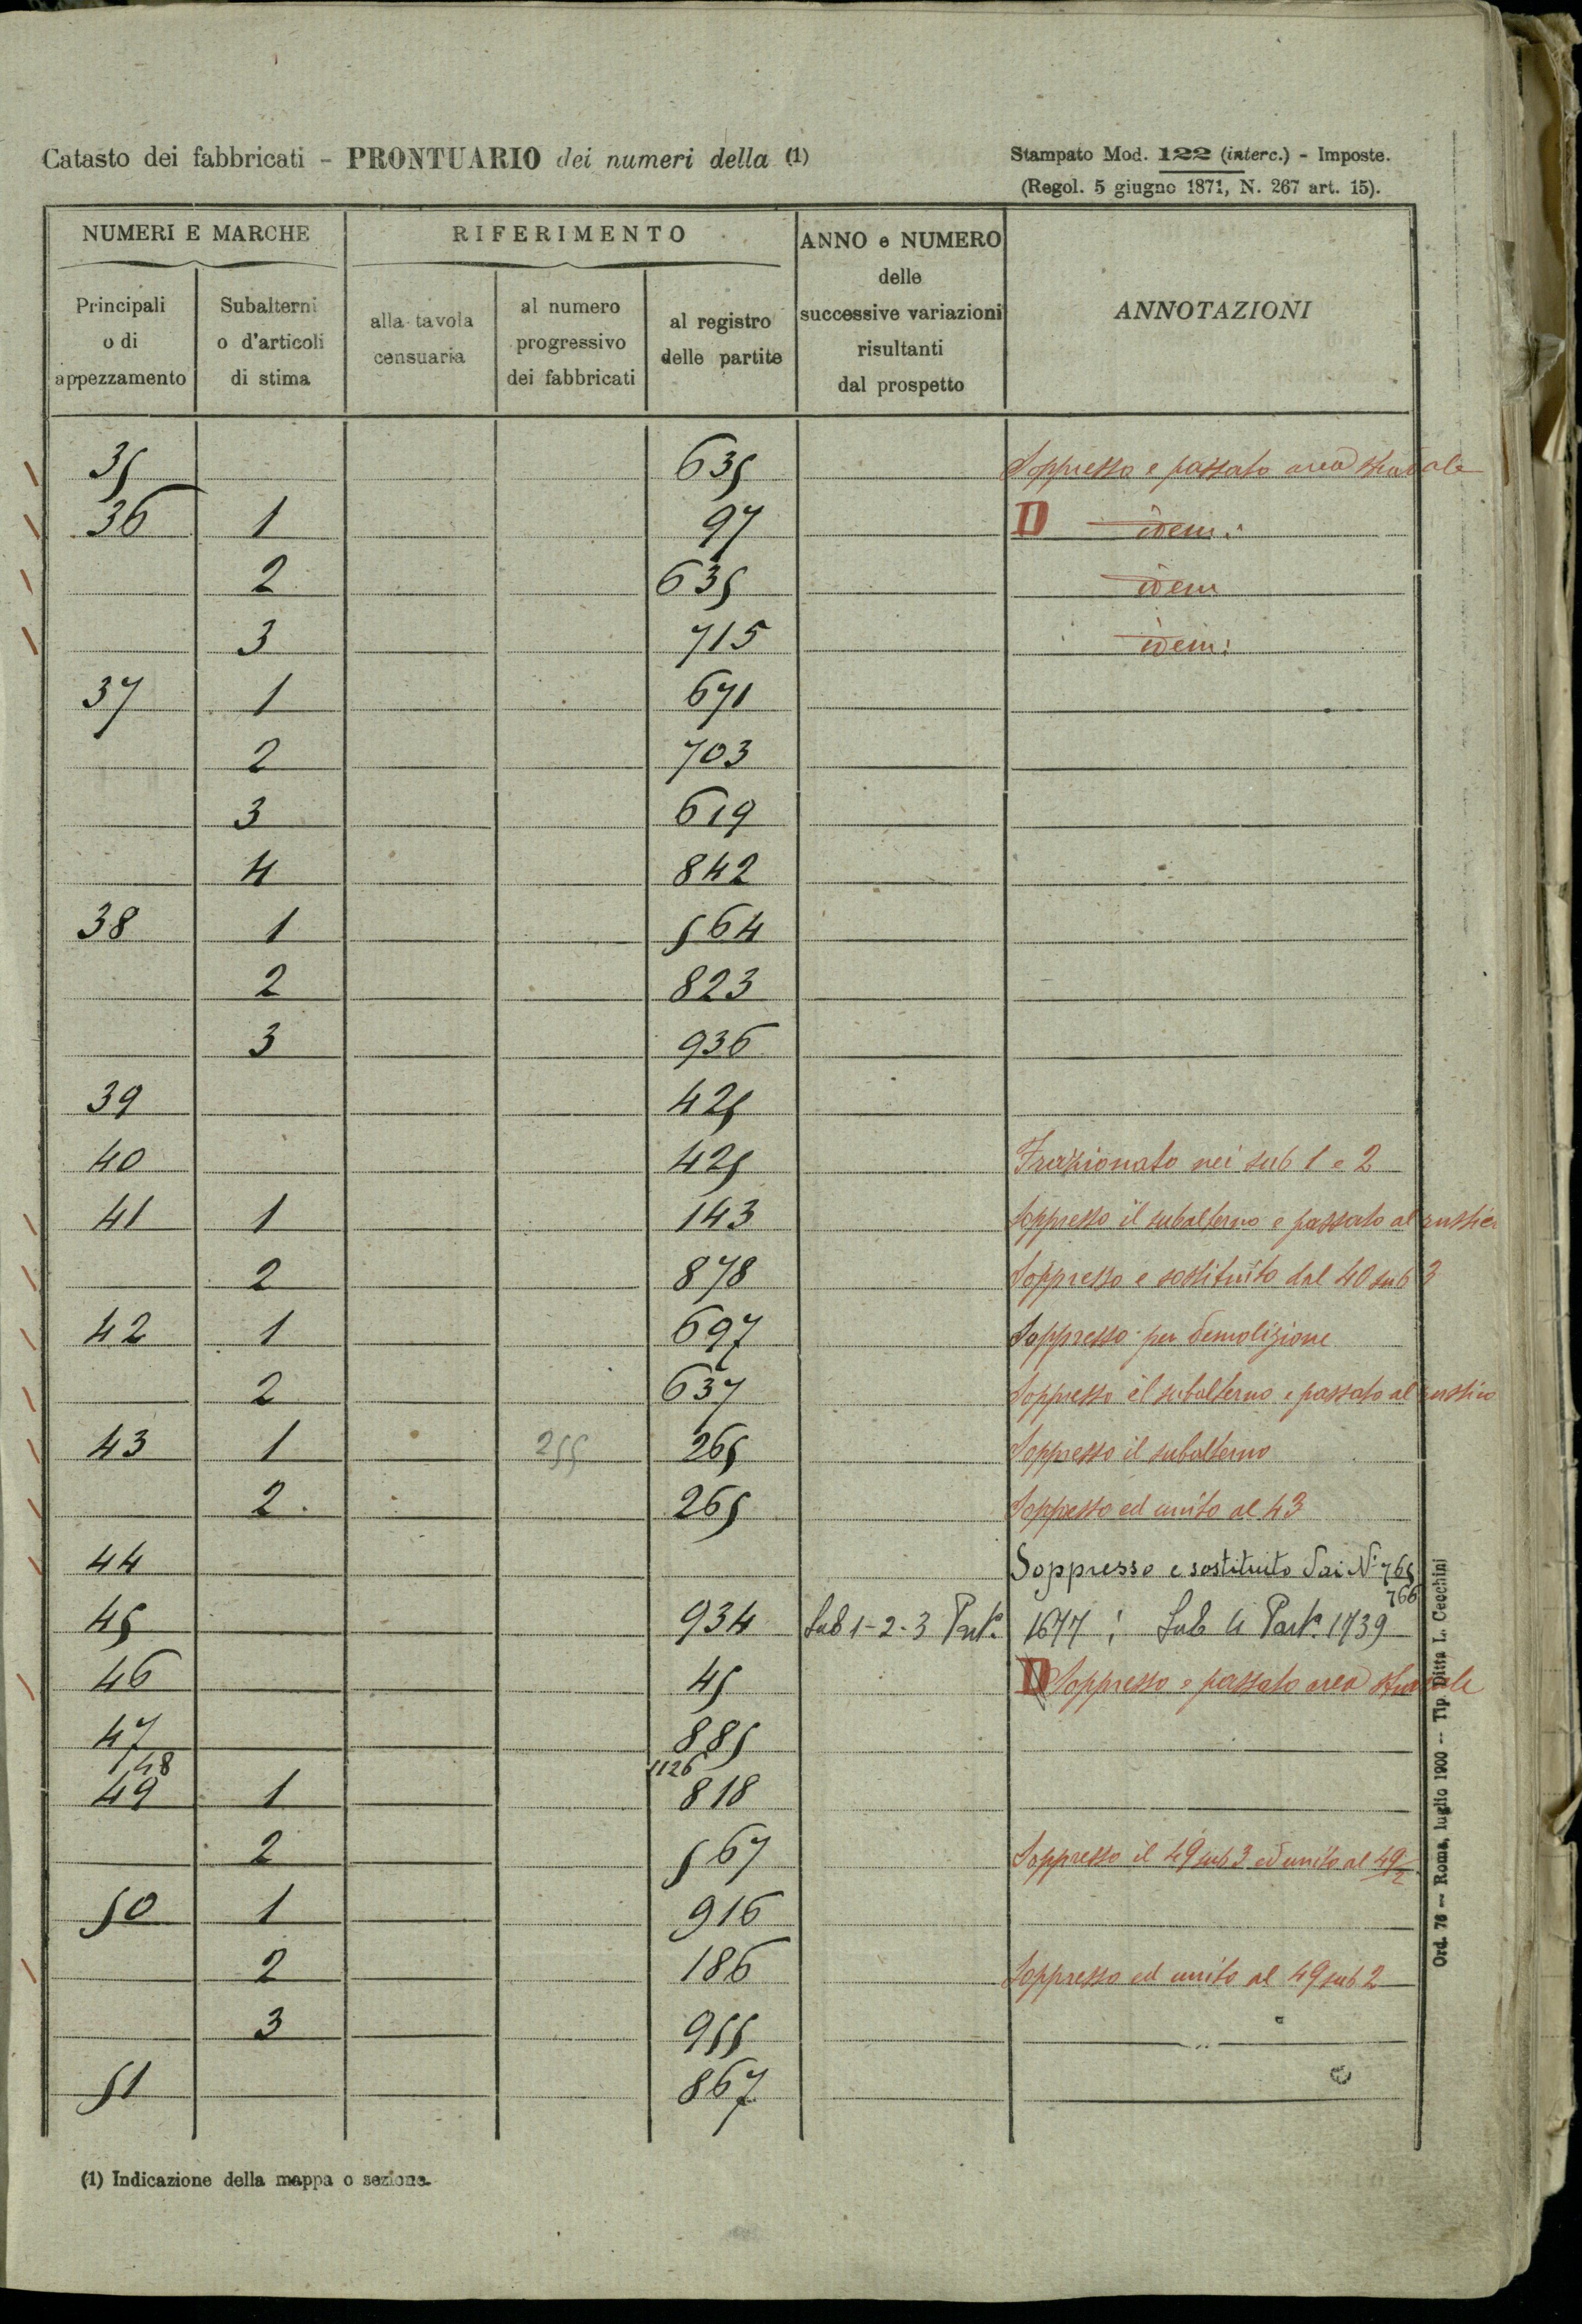 Catasto dei fabbricati - PRONTUARIO dei numeri della (1)
Stampato Mod. 122 (interc.) - Imposte.
(Regol. 5 giugno 1871, N. 267 art. 15).
NUMERI E MARCHE
RIFERIMENTO
ANNO e NUMERO
delle
successive variazioni
risultanti
dal prospetto
ANNOTAZIONI
Principali
o di
appezzamento
Subalterni
o d'articoli
di stima
alla tavola
censuaria
al numero
progressivo
dei fabbricati
al registro
delle partite
35 635 Soppresso e passato area stradale
36 1 97 D idem:
2 635 idem
3 715 idem:
37 1 671
2 703
3 619
4 842
38 1 564
2 823
3 936
39 425
40 425 Frazionato nei sub 1 e 2
41 1 143 Soppresso il subalterno e passato al rustico
2 878 Soppresso e sostituito dal 40 sub 3
42 1 697 Soppresso per demolizione
2 637 Soppresso il subalterno e passato al rustico
43 1 255 265 Soppresso il subalterno
2 265 Soppresso ed unito al 43
44 Soppresso e sostituito dai Ni 765
766
45 934 Sub 1-2-3 Part. 1677; Sub 4 Part. 1739
46 45 D Soppresso e passato area stradale
47 885
48 1126
49 1 818
2 567 Soppresso il 49 sub 3 ed unito al 49/2
50 1 916
2 186 Soppresso ed unito al 49 sub 2
3 955
51 867
(1) Indicazione della mappa o sezione.
Ord. 76 — Roma, luglio 1900 — Tip. Ditta L. Cecchini